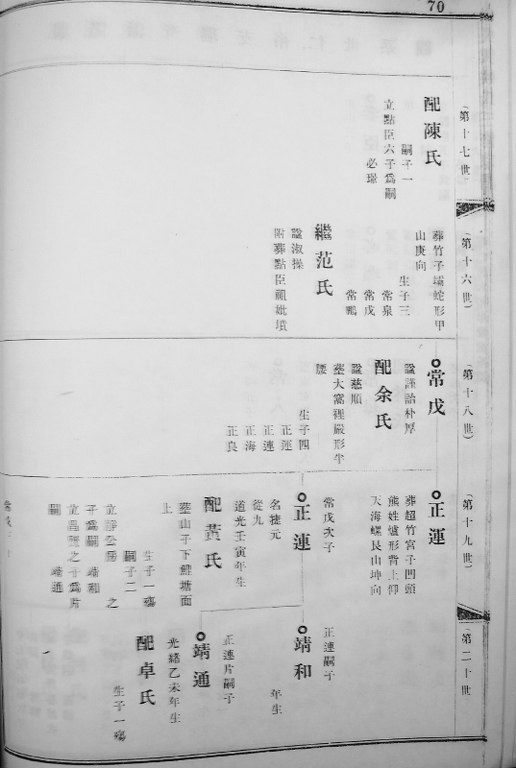 70
(第十七世
配陳氏
嗣子一
立點臣六子為嗣
必璟
(第十六世)
葬竹子壩蛇形甲
山庚向
生子三
常泉
常戊
常鴨
繼范氏
諡淑操
附葬點臣祖妣墳
(第十八世)
常戊
諡謹詒朴厚
配余氏
諡慈順
塟大窩裡嚴形半
腰
生子四
正運
正連
正海
正良
(第十九世)
正運
葬超竹宮子凹頭
熊姓爐形背上仰
天海螺艮山坤向
常戊次子
正連
名捷元
從九
道光壬寅年生
配黃氏
塟山子下鯉塘面
上
生子一殤
嗣子二
立靜公房 之
子為嗣 靖和
為片
嗣 靖通
(第二十世
正連嗣子
靖和
年生
正連片嗣子
靖通
光緒乙未年生
配卓氏
生子一殤